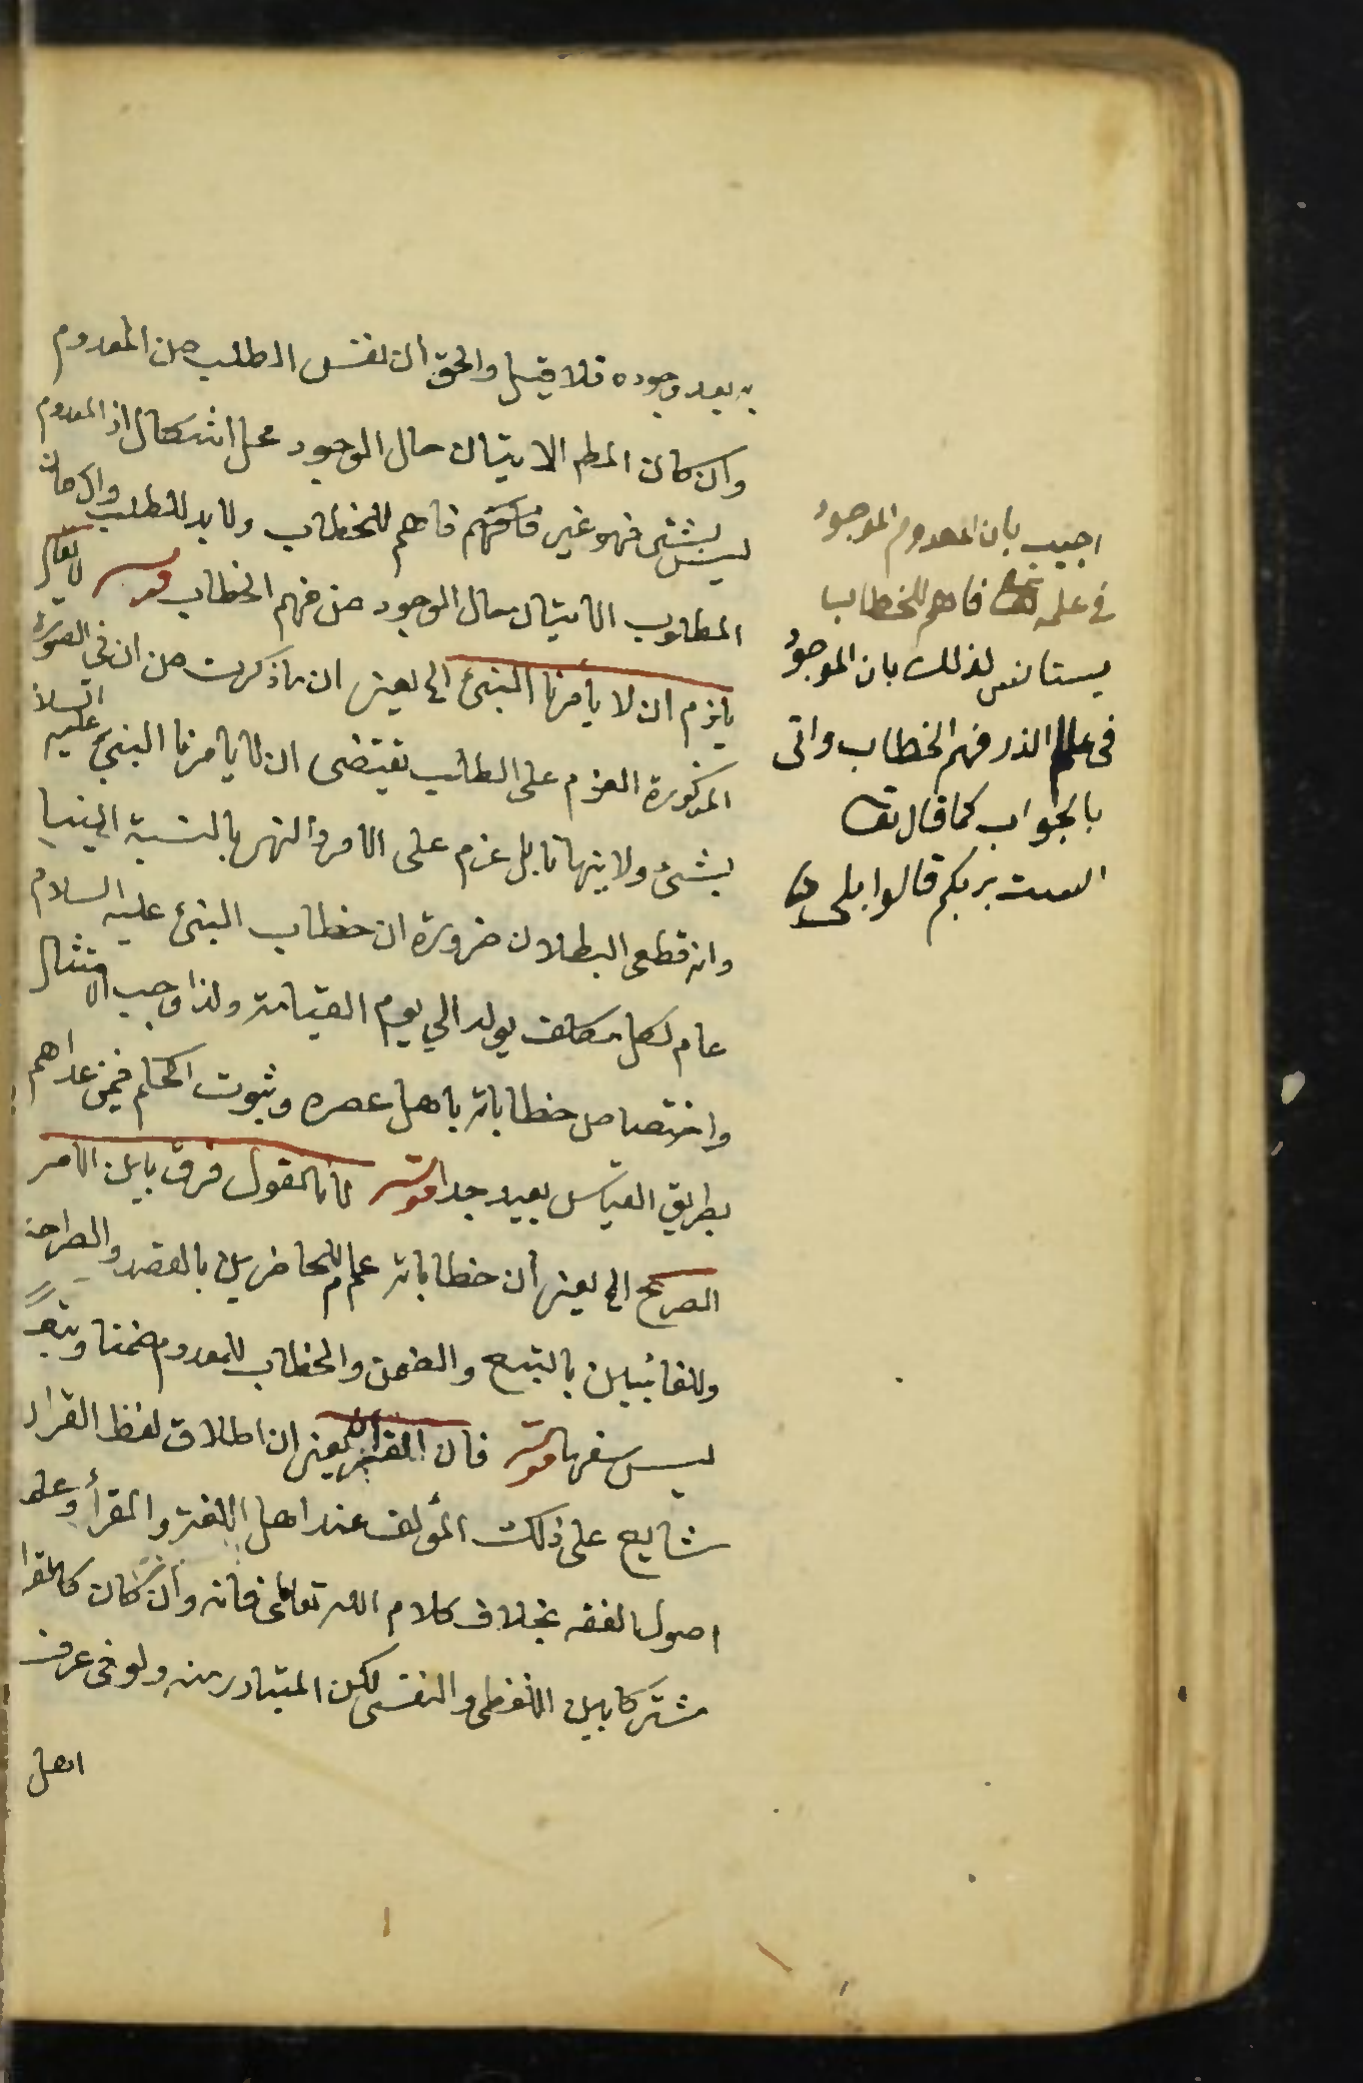 به بعد وجوده فلا قيل والحق ان نفس الطلب من المعدوم
وان كان المطم الاتيان حال الوجود محل اشكال اذ المعدوم
ليس بشئ فهو غير فاهم للخطاب ولابد للطلب وان كان
المطلوب الاتيان حال الوجود من فهم الخطاب قوله لا يقال
يلزم ان لا يأمرنا النبئ الخ يعنى ان ما ذكرت من ان فى الصورة
المذكورة العزم على الطلب يقتضى ان لا يامرنا النبئ عليه السلام
بشئ ولا ينهانا بل عزم على الامر والنهى بالنسبة الينا
وانه قطعى البطلان ضرورة ان خطاب النبئ عليه السلام
عام لكل مكلف يولد الي يوم القيامة ولذا وجب الامتثال
واختصاص خطاباته باهل عصره وثبوت الحكم فيمن عداهم
بطريق القياس بعيد جدا قوله لانا نقول فرق بين الامر
الصريح الخ يعنى ان خطاباته عم للحاضرين بالقصد والصراحة
وللغائبين بالتبع والضمن والخطاب للمعدوم ضمنا وتبعاً
ليس سفها قوله فان القرآن يعنى ان اطلاق لفظ القران
شايع على ذلك المؤلف عند اهل اللغة والقرأ وعلماء
اصول الفقه بخلاف كلام الله تعالى فانه وان كان كالقران
مشتركا بين اللفظى والنفسى لكن المتبادر منه ولو فى عرف
اهل
اجيب بان المعدوم الموجود
فى علمه تعا فاهم للخطاب
يستانس لذلك بان الموجود
فى علم الذر فهم الخطاب واتى
بالجواب كما قال تعا
الست بربكم قالوا بلى